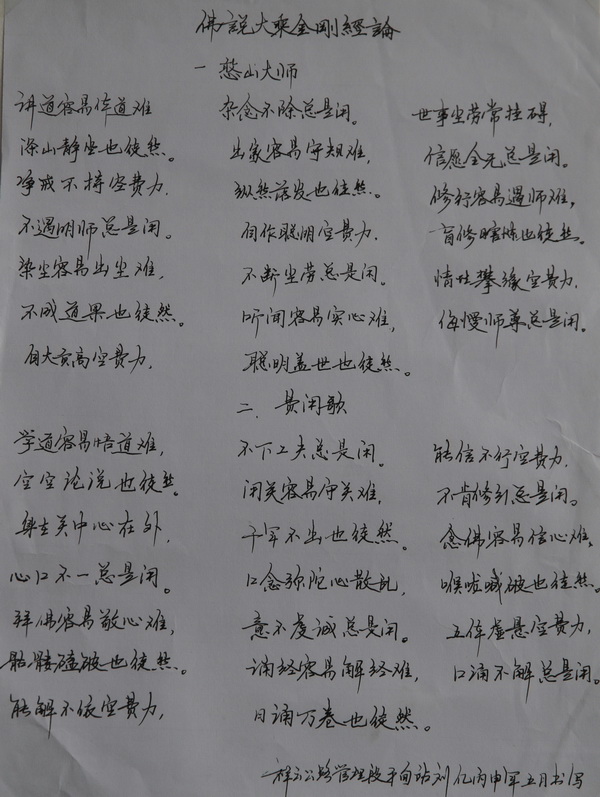 佛說大乘金剛經論
一 憨山大师
讲道容易体道难
杂念不除总是闲。
世事尘劳常挂碍,
深山静坐也徒然。
出家容易守规难,
信愿全无总是闲。
净戒不持空费力.
纵然落发也徒然。
修行容易遇师难,
不遇明师总是闲。
自作聪明空费力.
盲修瞎炼也徒然。
染尘容易出尘难,
不断尘劳总是闲。
情性攀缘空费力.
不成道果也徒然。
听闻容易实心难,
侮慢师尊总是闲。
自大贡高空费力.
聪明盖世也徒然。
二. 费闲歌
学道容易悟道难,
不下工夫总是闲。
能信不行空费力.
空空论说也徒然。
闭关容易守关难,
不肯修行总是闲。
身在关中心在外.
千年不出也徒然。
念佛容易信心难,
心口不一总是闲。
口念弥陀心散乱,
喉咙喊破也徒然。
拜佛容易敬心难,
意不虔诚总是闲。
五体虚悬空费力,
骷髅磕破也徒然。
诵经容易解经难,
口诵不解总是闲。
能解不依空费力,
日诵万卷也徒然。
公路管理段 站刘亿丙申年五月书写